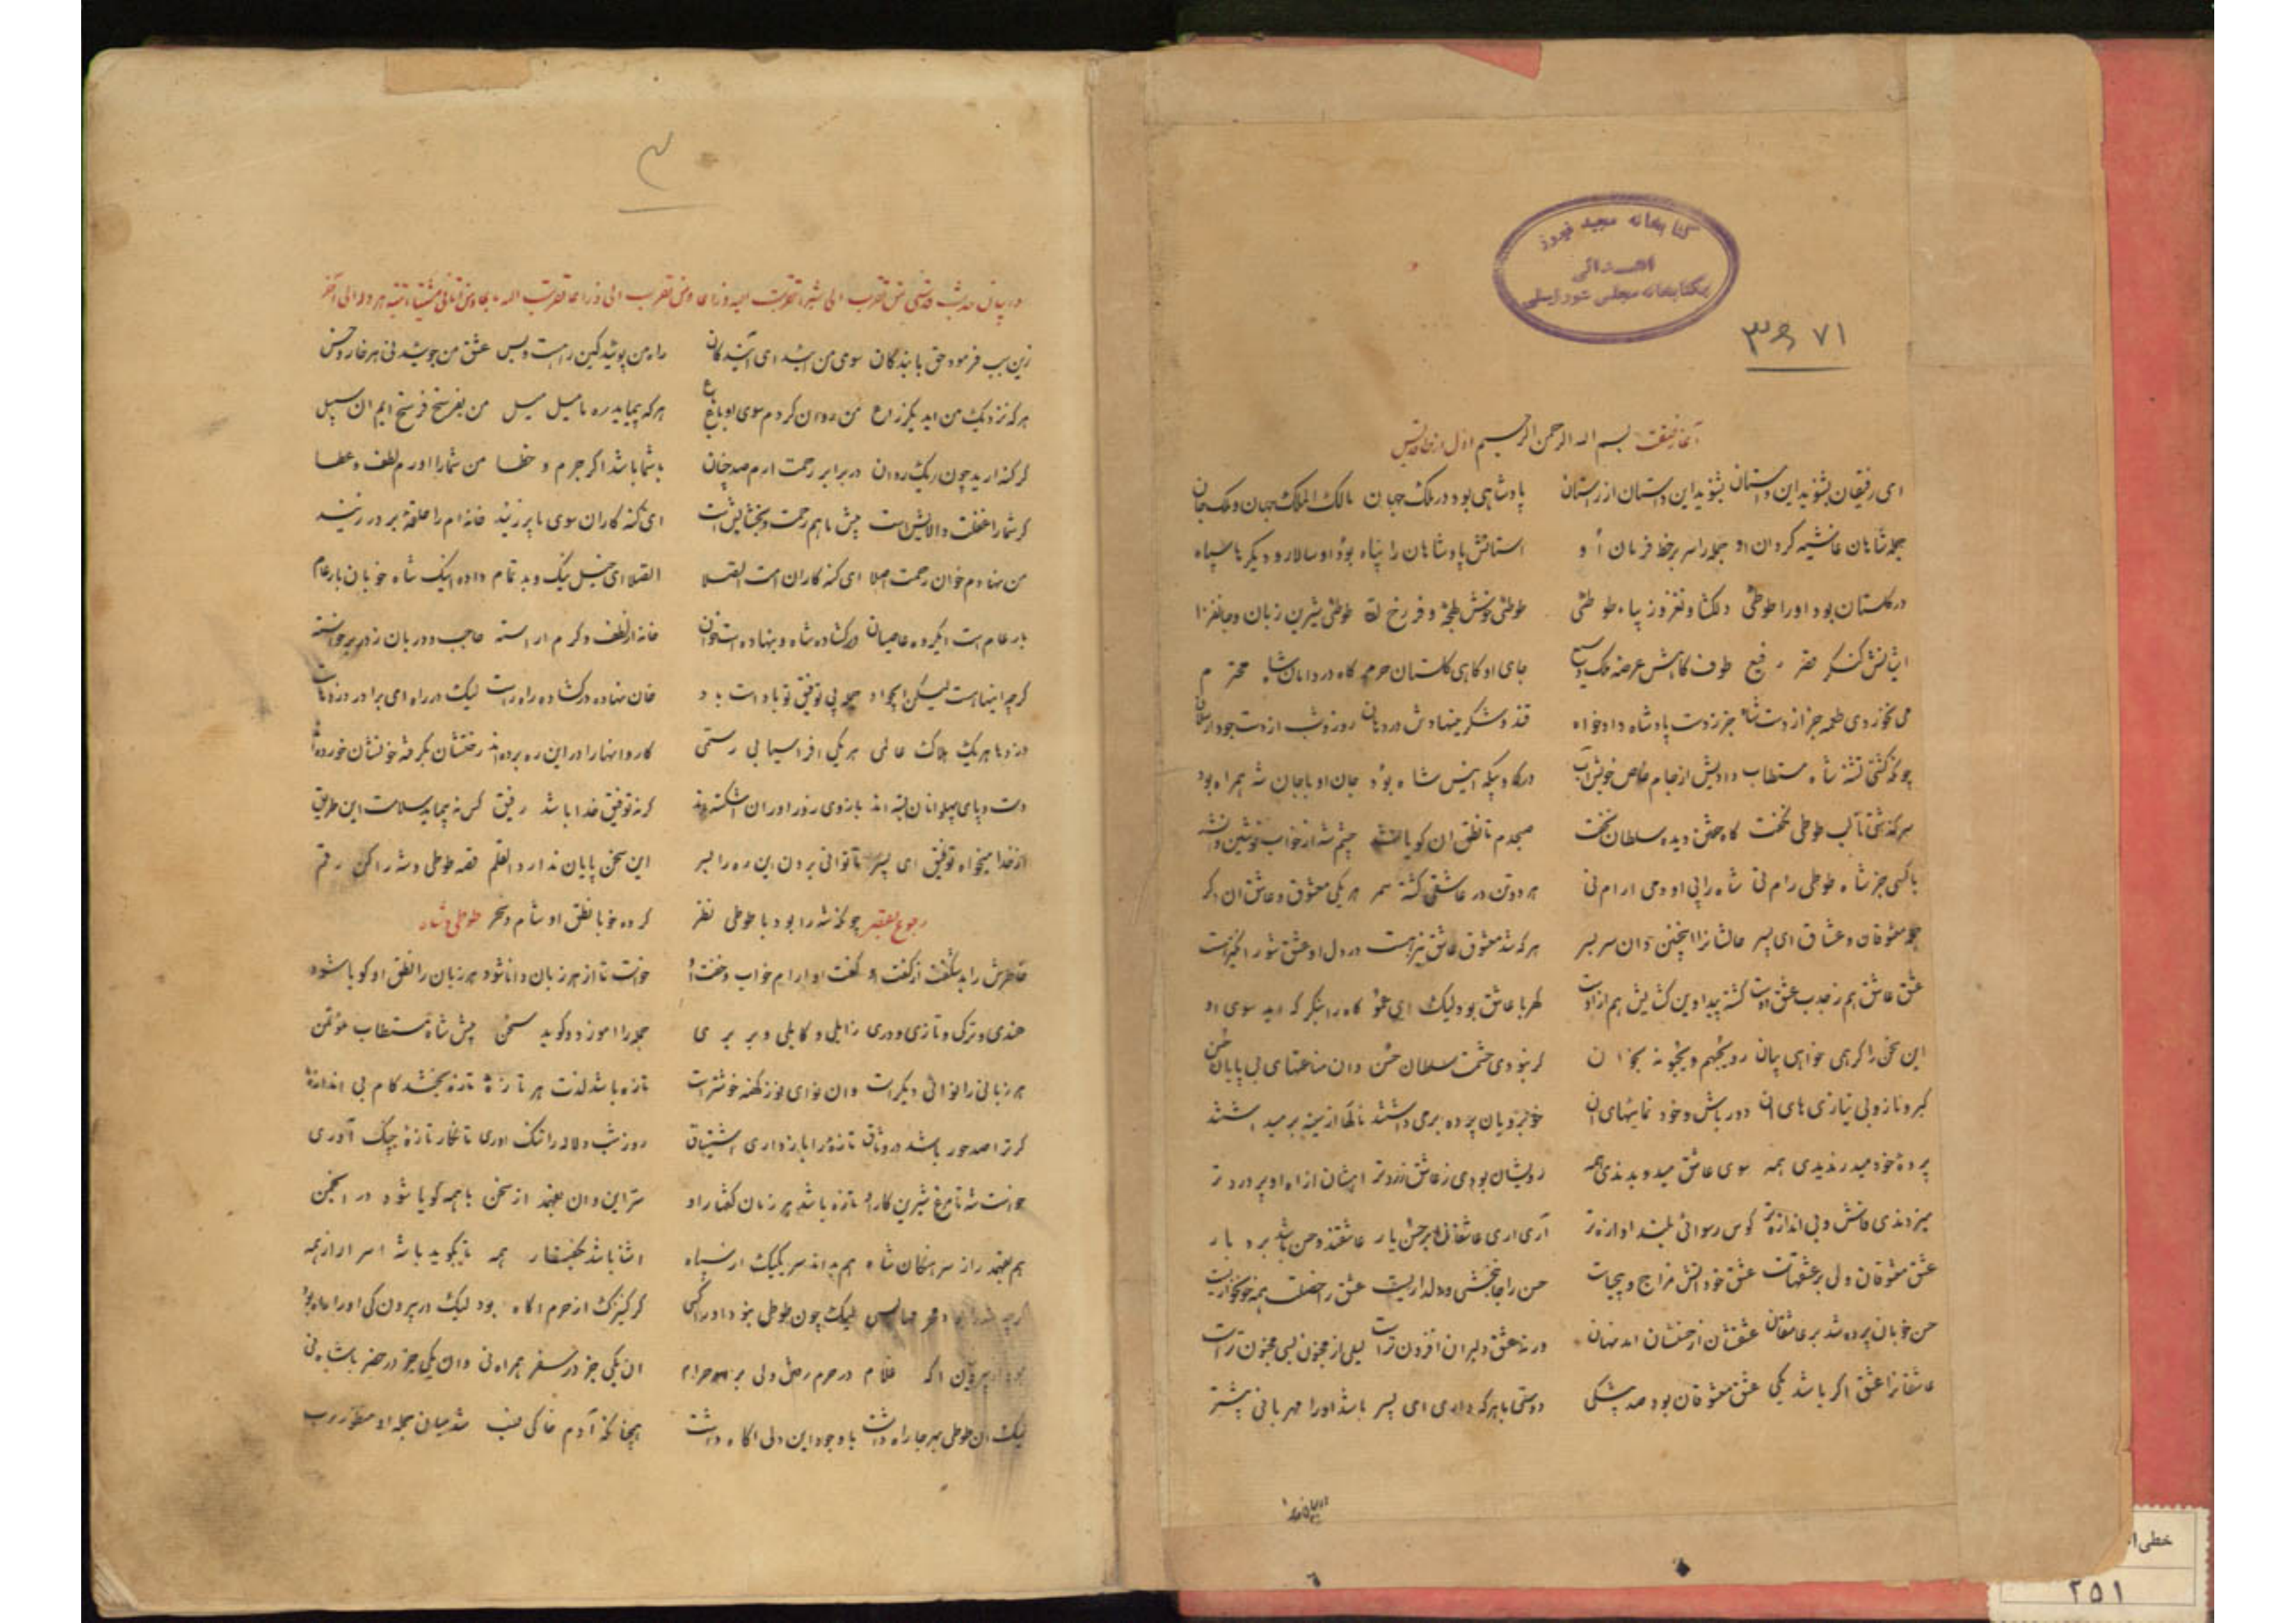 کتابخانه مجید فیروز
اهدائی
بکتابخانه مجلس شورایملی
۳۹۷۱
آغاز بسم الله الرحمن الرحیم اول
ای رفیقان بشنوید این داستان بشنوید این داستان از راستان پادشاهی بود در ملک جهان مالک الملک جهان و ملک جان
جمله شاهان غاشیه گردان او جمله را سر بر خط فرمان او استانش پادشاهان را پناه بود او سالار و دیگرها سپاه
در گلستان بود او را طوطئی دلکشا و نغز و زیبا طوطئی طوطئی خوش لهجه و فرخ لقا طوطئی شیرین زبان و جانفزا
قصر رفیع طوف کاهش عرصه ملک وسیع جای او کاهی گلستان حرم گاه در دامان شاه محترم
می نخوردی طعمه جز از دست شاه جز ز دست پادشاه دادخواه قند و شکر مینهادش در دهان روز و شب از دست جود
چونکه گشتی تشنه شاه مستطاب دادیش از جام خاص خویش آب درگه و بیگه انیس شاه بود جان او با جان شه همراه بود
سر گذشتی تا لب طوطی نخفت دیده سلطان نخفت صبحدم تا نطق آن گویا نشد چشم شه از خواب نوشین وا نشد
با کسی جز شاه طوطی رام نی شاه را بی او دمی ارام نی هر دوتن در عاشقی گشته سمر هر یکی معشوق و عاشق ان دگر
جمله معشوقان و عشاق ای پسر حالشانرا اینچنین دان سر بسر هر که شد معشوق عاشق نیز هست در دل او عشق شور انگیز هست
عشق عاشق هم ز جذب عشق اوست گشته پیدا وین کشایش هم ازوست کهربا عاشق بود لیک ای عمو کاه را بنگر که اید سوی او
این سخن را گر همی خواهی بیان رو یحبهم و یحبونه بخوان گر نبودی حشمت سلطان حسن وان مناعتهای بی پایان حسن
کبر و ناز و بی نیازی های ان دور باش و خود نمائیهای ان خوبرویان پرده بر می داشتند
پرده خود میدریدندی همه سوی عاشق میدویدندی همه رویشان بودی ز عاشق زردتر
میزدندی فاش و بی اندازه تر کوس رسوائی بلند اوازه تر آری اری عاشقان بر حسن یار عاشقند و حسن باشد برد بار
عشق معشوقان ولی بر عشقهاست عشق خود حسن را جانبخشی و دلداریست عشق را خصلت همه خونخواریست
حسن خوبان پرده شد بر عاشقان عشقشان از حسنشان امد نهان ورنه عشق دلبران افزون تر است لیلی از مجنون بسی مجنون تر است
عاشقانرا عشق اگر باشد یکی عشق معشوقان بود صد بیشکی دوستی با هر که داری ای پسر باشد او را مهربانی بیشتر
۳
در بیان حدیث قدسی من تقرب الی شبرا تقربت الیه ذراعا و من تقرب الی ذراعا تقربت الیه باعا و من اتانی مشیا اتیته هرولة الی آخر
زین سبب فرمود حق با بندگان سوی من ائید ای آیندگان راه من پوئید کین راهست و بس عشق من جوئید نی هر خار و خس
هر که نزدیک من اید یک ذراع من روان کردم سوی او باع ع هر که پیماید ره ما میل میل من بفرسخ فرسخ ایم ان سبیل
گر گنه ارید چون ریگ روان در برابر رحمت ارم صد چنان با شما باشد اگر جرم و خطا من شما را اورم لطف و عطا
گر شما را غفلت و الایش است پیش ما هم رحمت و بخشایش است ای گنه کاران سوی ما پر زنید خانه ام را حلقه بر در زنید
من نهادم خوان رحمت الصلا ای گنه کاران امت الصلا الصلا ای خیل نیک و بد تمام داده اینک شاه خوبان بار عام
بار عام است ایگروه عاصیان در گشاده شاه و بنهاده است خوان خانه از لطف و کرم اراسته حاجب و دربان ز در برخواسته
گرچه اینها هست لیکن جمله بی توفیق تو باد است باد خان نهاده در گشاده راه راست لیک در راه ای برادر دزدهاست
دزدها هر یک هلاک عالمی هر یکی افراسیابی رستمی کاروانها را در این ره برده اند رختشان بگرفته خونشان خورده اند
دست و پای پهلوانان بسته اند بازوی زور اوران اشکسته اند گر نه توفیق خدا باشد رفیق کس نه پیماید سلامت این طریق
از خدا میخواه توفیق ای پسر تا توانی بردن این ره را بسر این سخن پایان ندارد القلم قصه طوطی و شه را کن رقم
رجوع بقصه طوطی و شاه چونکه شه را بود با طوطی نظر کرده خو با نطق او شام و سحر
خاطرش را بد شگفت از گفت او گفت او ارام خواب و خفت او خواست تا از هر زبان دانا شود هر زبان را نطق او گویا شود
هندی و ترکی و تازی و دری زابلی و کابلی و بربری جمله را اموزد و گوید سخن پیش شاه مستطاب مؤتمن
هر زبانی را نوائی دیگر است وان نوای نو ز کهنه خوشتر است تازه باشد لذت هر تازه تازه بخشد کام بی اندازه
گر ترا صد حور باشد در وثاق تازه را باز داری اشتیاق روز و شب دلاله را تنگ اوری تا نگار تازه چنگ آوری
خواست شه تا مرغ شیرین کار او تازه باشد هر زمان گفتار او سر این و ان بفهمد از سخن با همه گویا شود در انجمن
هم بفهمد راز سرهنگان شاه هم بداند سر یکیک از سپاه اشنا باشد بگفتار همه بازگوید با شه اسرار از همه
لیک چون طوطی نبود او را کسی گر کنیزک از حرم اگاه بود لیک در بیرون کی او را راه بود
غلام در حرم رفتن ولی بر وی حرام ان یکی جز در سفر همراه نی وان یکی جز در حضر با شاه نی
لیک ان طوطی بهر جا راه داشت با وجود این دلی اگاه داشت همچنانکه آدم خاکی نسب شد میان جمله او منظور رب
خطی
۲۵۱